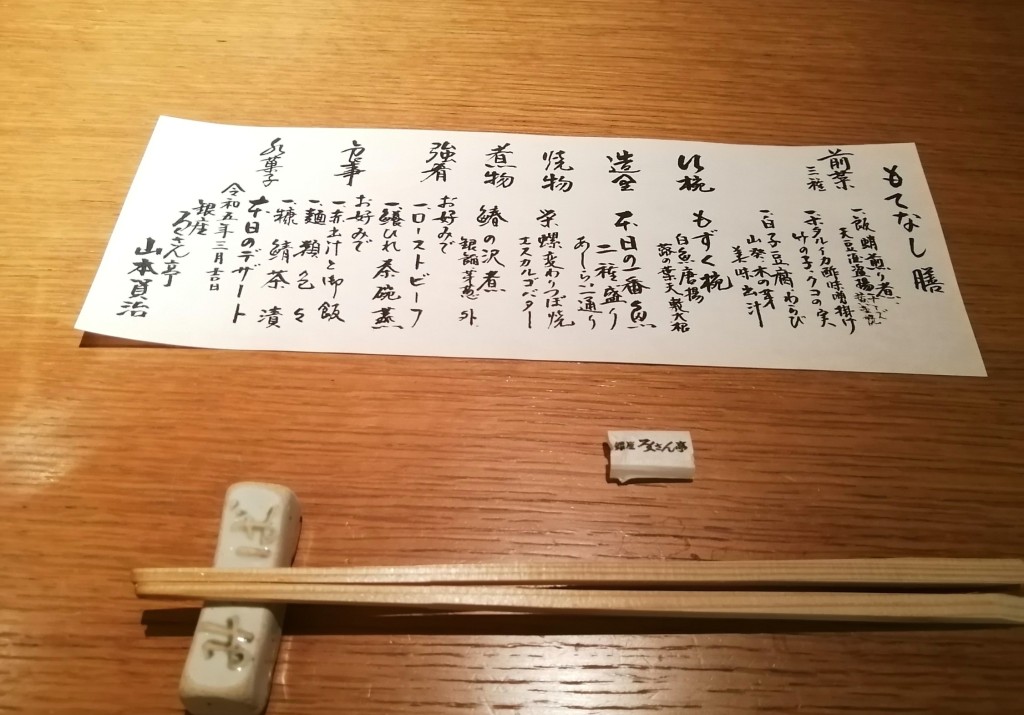 もてなし膳
前菜
三種
一、飯蛸煎り煮、
一、ホタルイカ酢味噌掛け
竹の子 クコの実
一、白子豆腐 わらび
山葵 木の芽
美味出汁
もずく椀
白魚唐揚
蕗の葉天
造里
本日の一番魚
二種盛り
あしらい一通り
焼物
栄螺変わりつぼ焼
エスカルゴバター
煮物
鰆の沢煮
強肴
お好みで
一、ローストビーフ
一、鱶ひれ茶碗蒸
食事
お好みで
一、赤土汁と御飯
一、麺類色々
一、糠鯖茶漬
水菓子
本日のデザート
令和五年三月吉日
銀座
ろくさん亭
山本真治
銀座 ろくさん亭